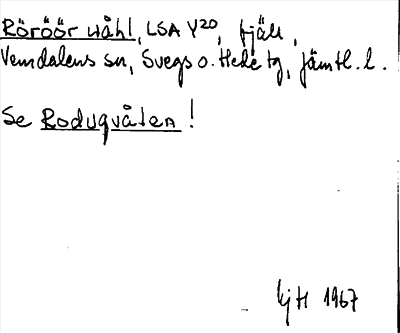 Röröör wåhl, LSA Y20, fjäll,
Vemdalens sn, Svegs o. Hede tg, Jämtl. l.
Se Roduqvålen!
1967